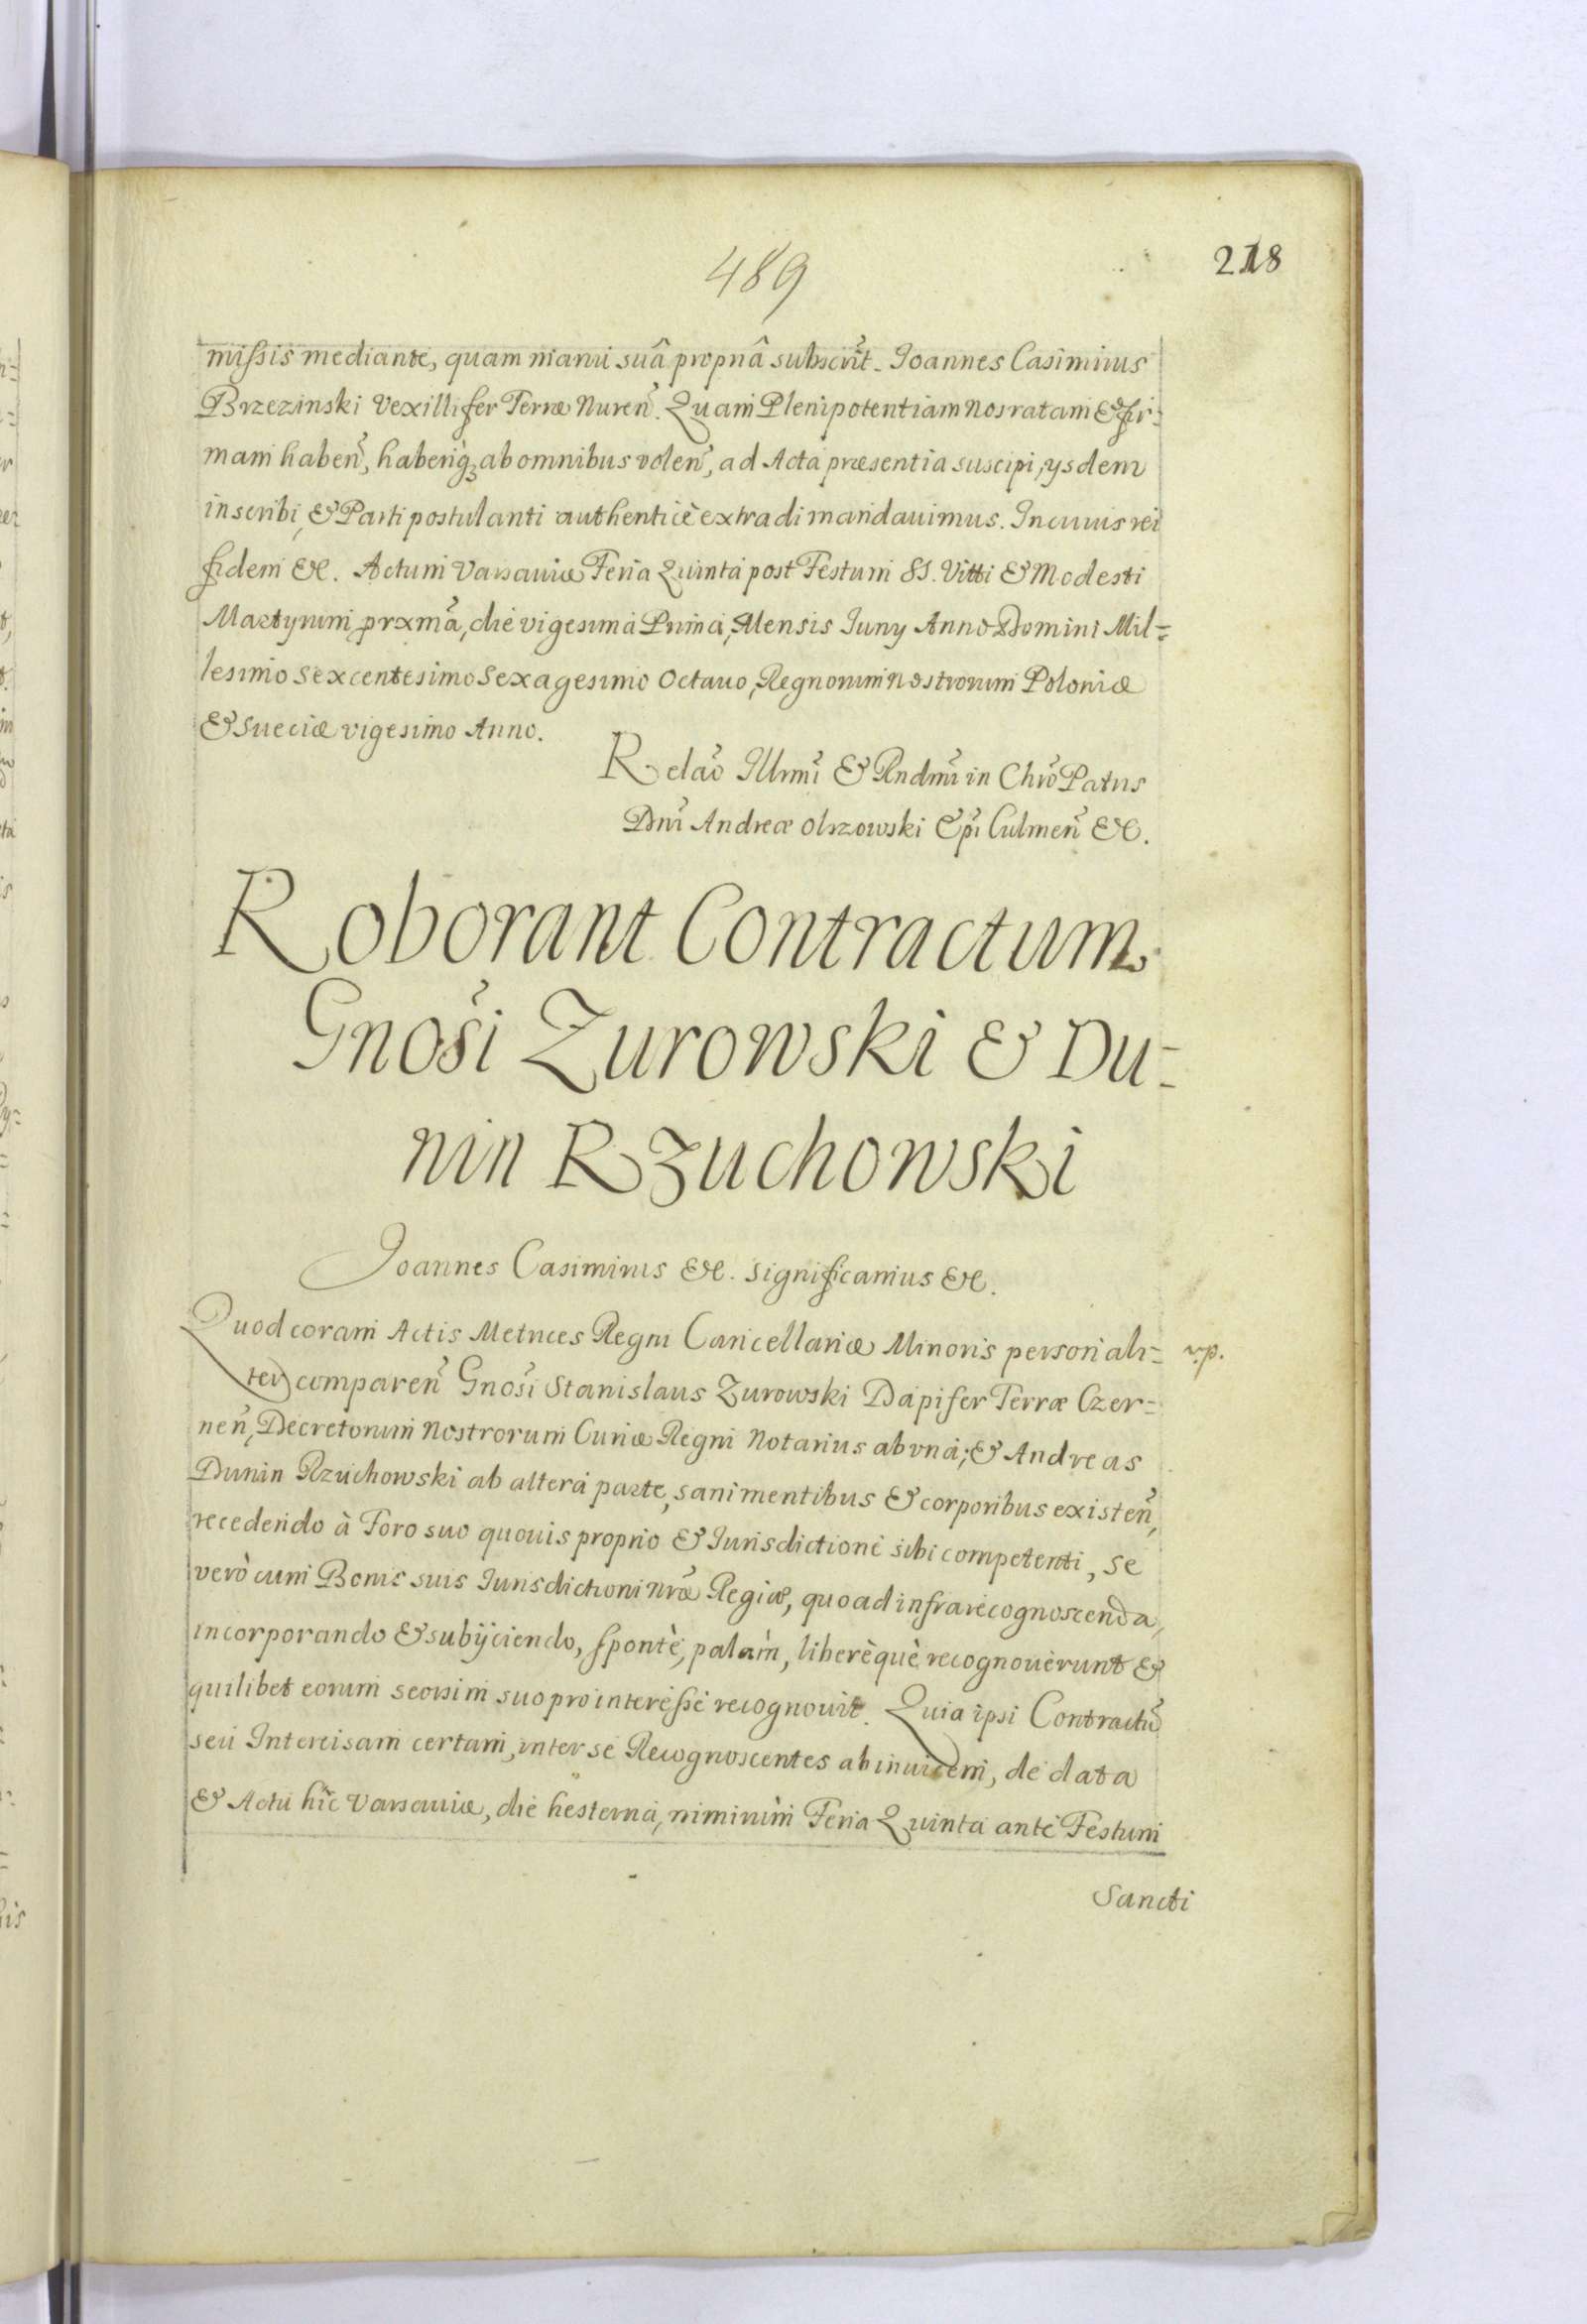 489
218
missis mediante, quam manu suâ propriâ subscrit̃. Joannes Casimirus
Brzezinski Vexillifer Terræ Nureñ. Quam Plenipotentiam nos ratam & fir=
mam habeñ, haberiq; ab omnibus voleñ, ad Acta præsentia suscipi, ysdem
inscribi, & Parti postulanti authenticè extradi mandauimus. In cuius rei
fidem &c. Actum Varsauiæ Feria Quinta post Festum SS. Vitti & Modesti
Martyrum prxmã, die vigesima Prima, Mensis Juny Anno Domini Mil=
lesimo Sexcentesimo Sexagesimo Octauo, Regnorum nostrorum Poloniæ
& Sueciæ vigesimo Anno.
Relaõ Illrmĩ & Rndmĩ in Chrõ Patris
Dnĩ Andreæ Olszowski Epĩ Culmeñ &c.
Roborant Contractum
Gnosĩ Zurowski & Du=
nin Rzuchowski
Joannes Casimirus &c. significamus &c.
Quod coram Actis Metrices Regni Cancellariæ Minoris personali= r.p.
ter compareñ Gnosĩ Stanislaus Zurowski Dapifer Terræ Czer=
neñ, Decretorum Nostrorum Curiæ Regni Notarius ab vna; & Andreas
Dunin Rzuchowski ab altera parte, sani mentibus & corporibus existeñ,
recedendo à Foro suo quouis proprio & Jurisdictione sibi competenti, se
verò cum Bonis suis Jurisdictioni nræ̃ Regiæ, quoad infra recognoscenda,
incorporando & subijciendo, spontè, palàm, liberèquè recognouerunt &
quilibet eorum seorsim suo pro interesse recognouit. Quia ipsi Contractũ
seu Intercisam certam, inter se Recognoscentes ab inuicem, de data
& Actu hic Varsauiæ, die hesterna, nimirùm Feria Quinta ante Festum
Sancti